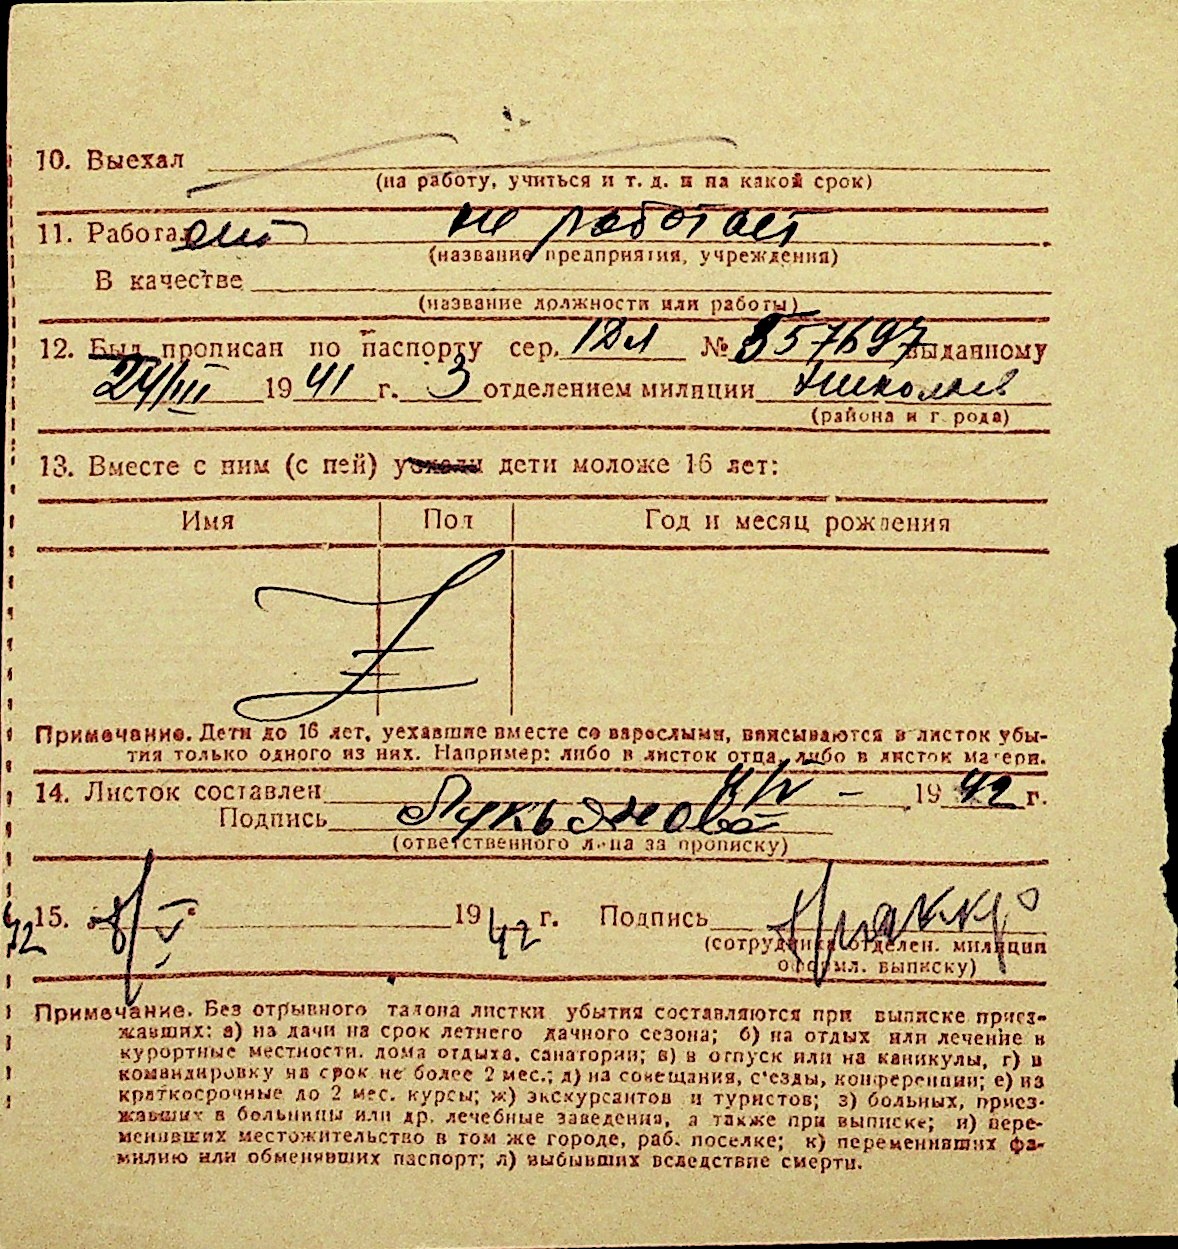 10. Выехал
(на работу, учиться и т. д. и на какой срок)
11. Работает не работает
(название предприятия, учреждения)
В качестве
(название должности или работы)
12. Был прописан по паспорту сер. № 357697 выданному
24/III 1941 г. 3 отделением милиции Николаев
(района и г рода)
13. Вместе с ним (с ней) уехали дети моложе 16 лет:
Имя Пол Год и месяц рождения
Примечание. Дети до 16 лет, уехавшие вместе со взрослыми, вписываются в листок убы-
тия только одного из них. Например: либо в листок отца, либо в листок матери.
14. Листок составлен 4/V - 1942 г.
Подпись Лукьянова
(ответственного лица за прописку)
42
15. 8/V 1942 г. Подпись
(сотрудника отделен. милиции
оформл. выписку)
Примечание. Без отрывного талона листки убытия составляются при выписке приез-
жавших: а) на дачи на срок летнего дачного сезона; б) на отдых или лечение в
курортные местности. дома отдыха, санатории; в) в отпуск или на каникулы, г) в
командировку на срок не более 2 мес.; д) на совещания, с'езды, конференции; е) на
краткосрочные до 2 мес. курсы; ж) экскурсантов и туристов; з) больных, приез-
жавших в больницы или др. лечебные заведения, а также при выписке; и) пере-
менивших местожительство в том же городе, раб. поселке; к) переменивших фа-
милию или обменявших паспорт; л) выбывших вследствие смерти.